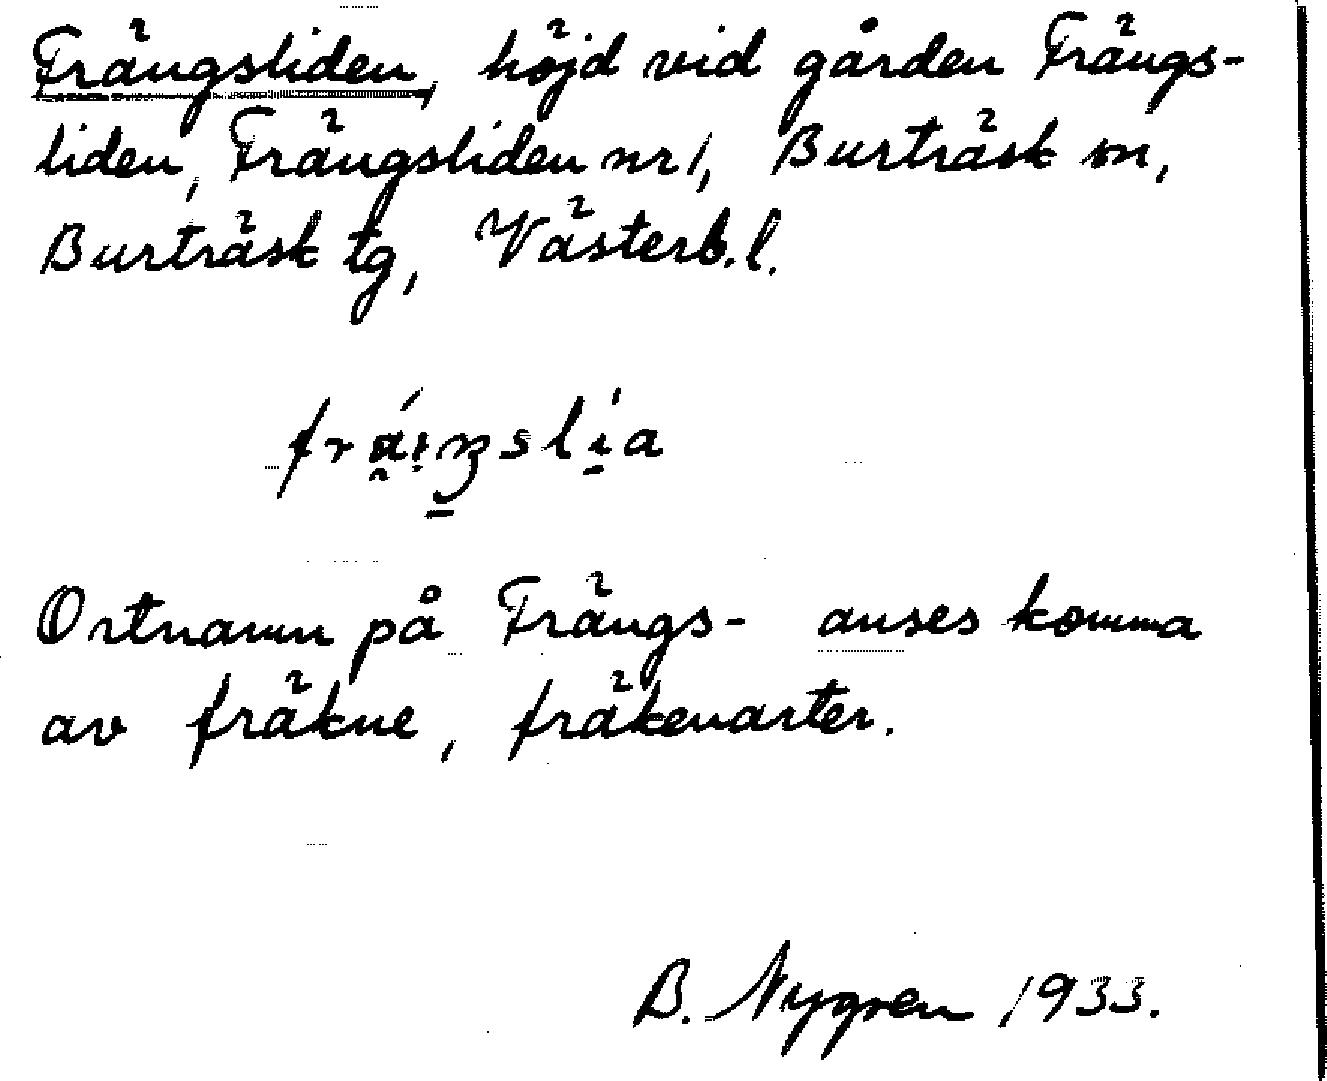 Frängsliden, höjd vid gården Frängs-
liden, Frängsliden nr 1, Burträsk sn,
Burträsk tg, Västerb.l.
Ortnamn på Frängs- anses komma
av fräkne, fräkenarter.
B. Nygren 1933.